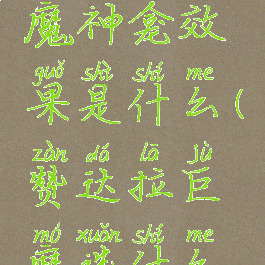 魔神龛效
guǒ shì shí me
果是什么(
zàn dá lā jù
赞达拉巨
mó xuǎn shí me
魔选什么